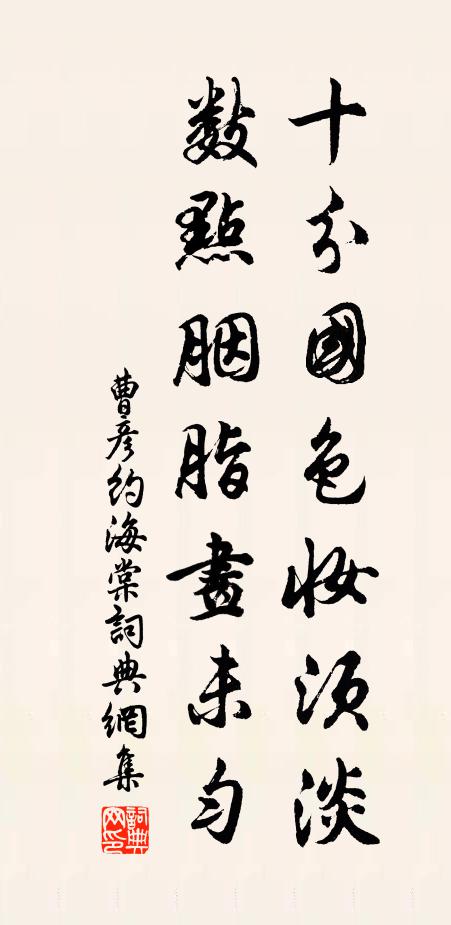 十分國色妝須淡
數點胭脂畫未勻
曹彥約海棠詞典網集
詞典网印